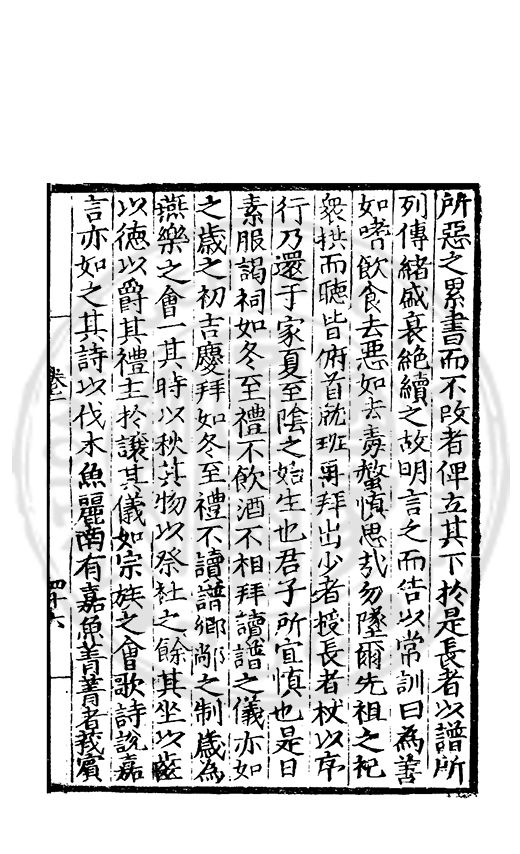 所惡之累書而不改者俾立其下於是長者以譜所
列傳緒盛衰絕續之故明言之而告以常訓曰為善
如嗜飲食去惡如去毒螫慎思哉勿墜爾先祖之祀
衆拱而聽皆俯首就班再拜出少者授長者杖以序
行乃還于家夏至陰之始生也君子所宜慎也是日
素服謁祠如冬至禮不飲酒不相拜讀譜之儀亦如
之歲之初吉慶拜如冬至禮不讀譜鄉鄰之制歲為
燕樂之會一其時以秋其物以祭社之餘其坐以齒
以德以爵其禮主於讓其儀如宗族之會歌詩說嘉
言亦如之其詩以伐木魚麗南有嘉魚菁菁者莪賓
卷一
四十六